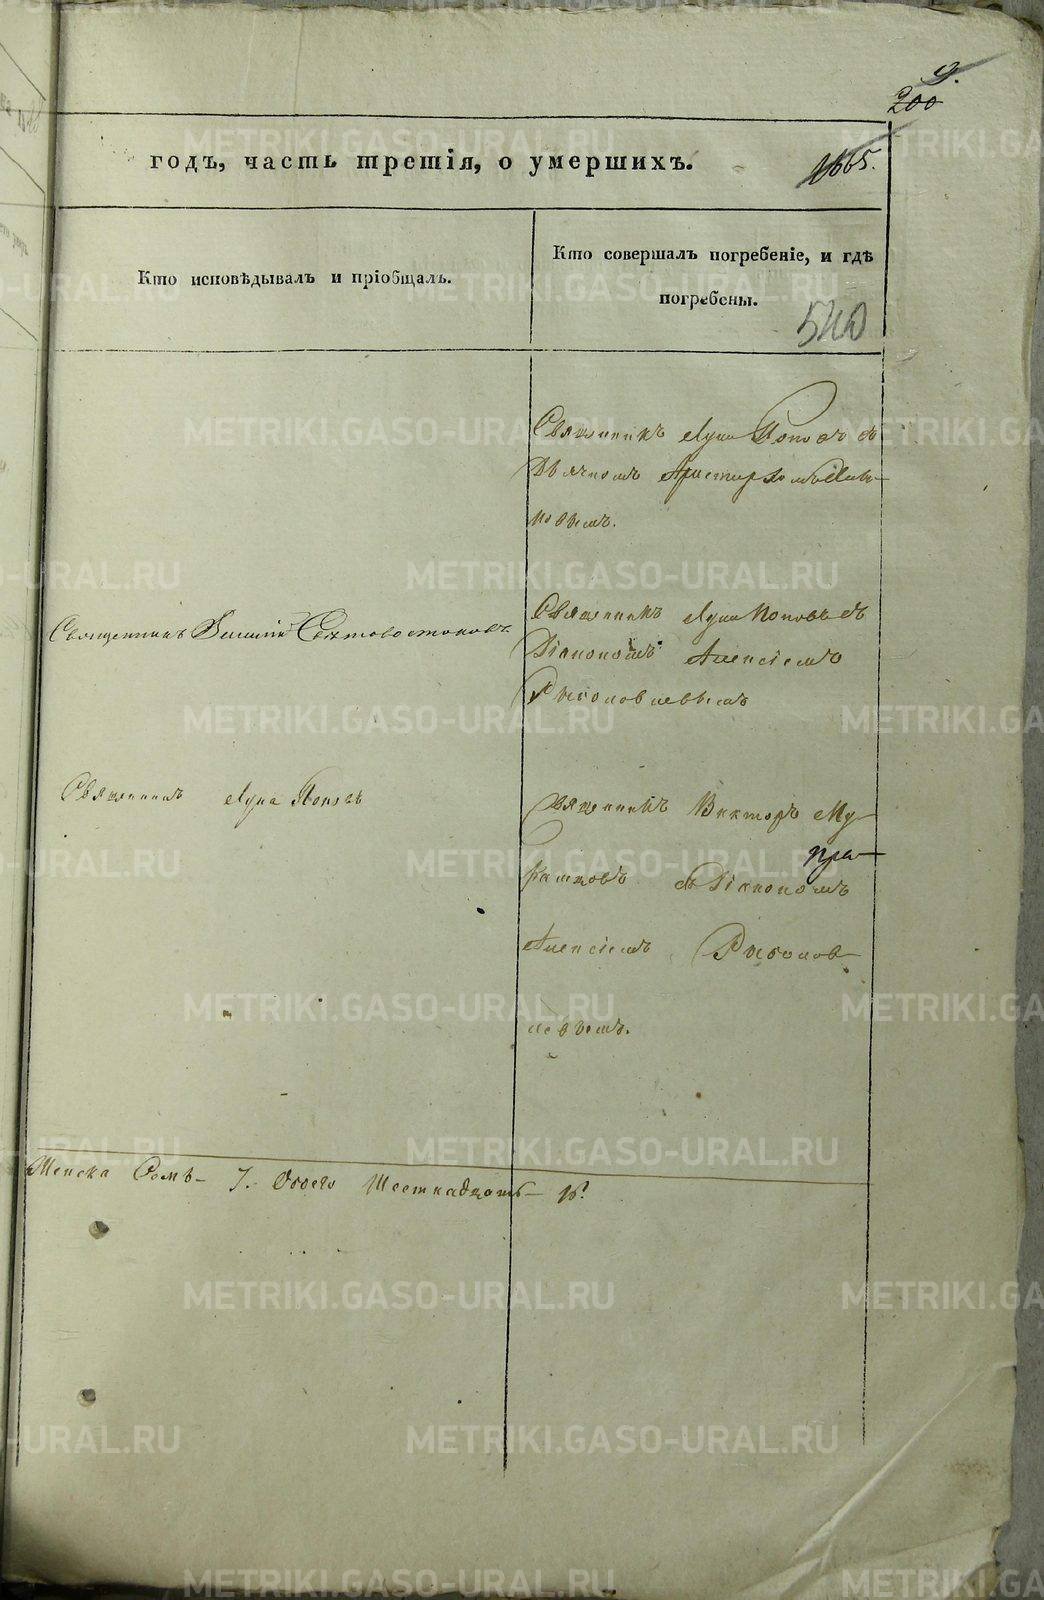 9.
200
годъ, часть третія, о умершихъ.
1665.
Кто исповѣдывалъ и пріобщалъ.
Кто совершалъ погребеніе, и гдѣ
погребены.
540
Священникъ Лука Поповъ съ
Дьячкомъ Аристархомъ
новымъ.
Священникъ Свѣтовостоковъ.
Священникъ Лука Поповъ съ
Діакономъ Алексіемъ
Рыболовлевымъ
Священникъ Лука Поповъ
Священникъ Викторъ Му-
пра-
съ Діакономъ
Алексіемъ Рыболов-
левымъ.
Женска Семь - 7. Обоего Шестнадцать - 16.
METRIKI.GASO-URAL.RU